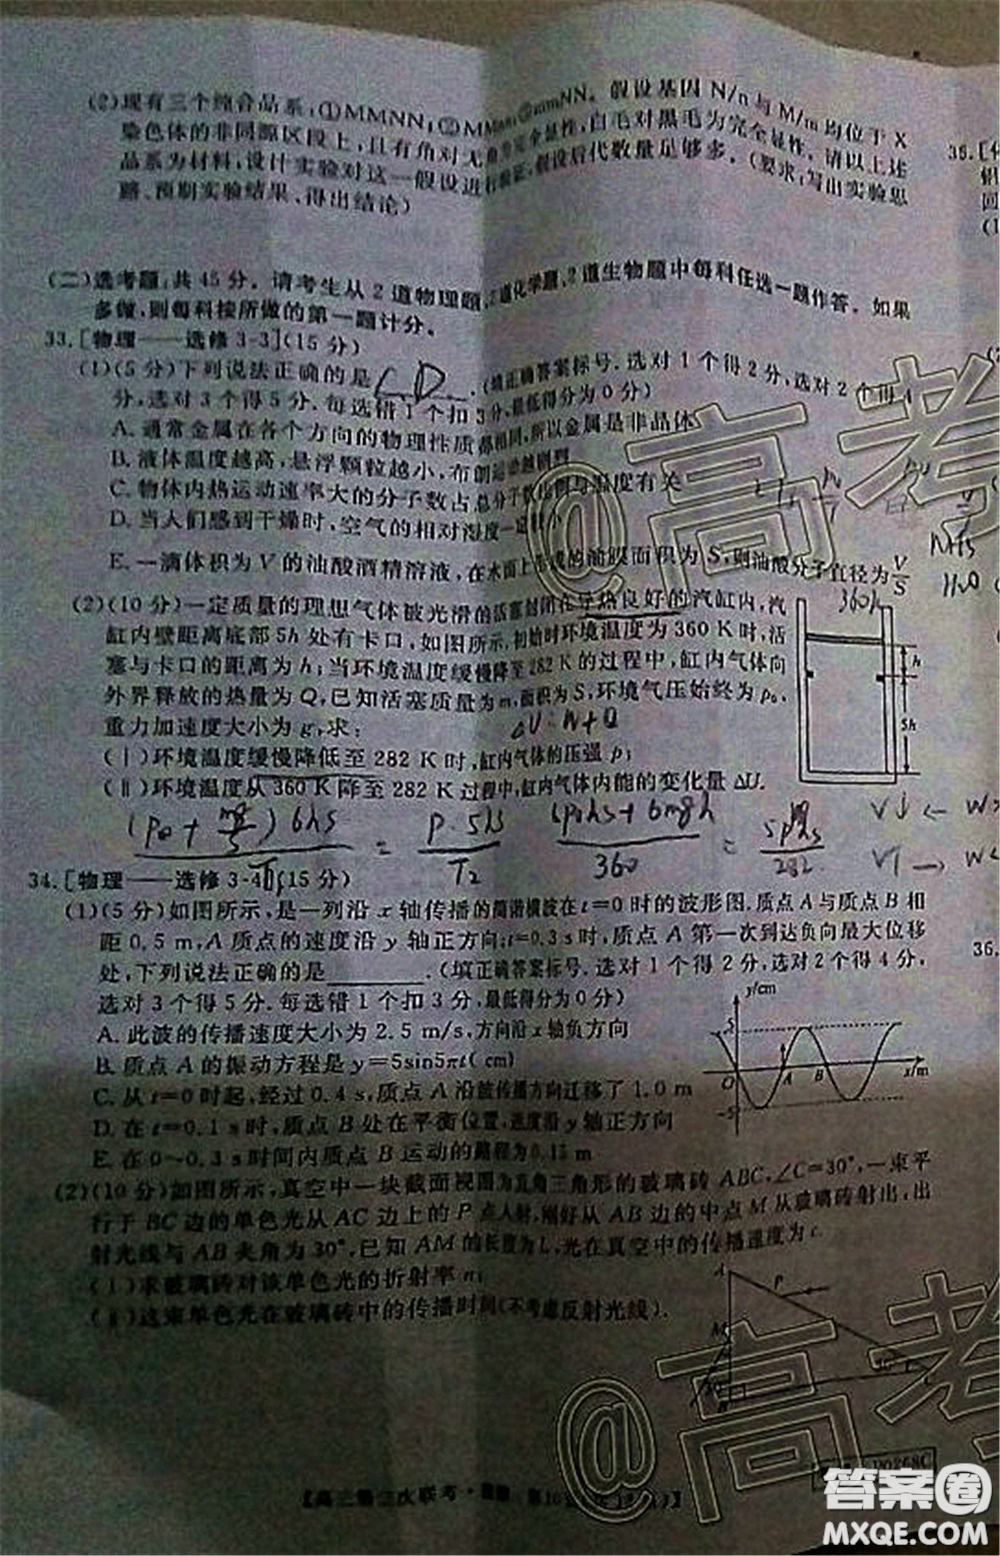 (2)现有三个综合品系:①MMNN;②MM;③mmNN。假设基因 N/n 与 M/m 均位于 X
染色体的非同源区段上,且有角对无角为完全显性,白毛对黑毛为完全显性,请以上述
品系为材料,设计实验对这一假设进行验证,假设后代数量足够多。(要求:写出实验思
路、预期实验结果、得出结论)
35.[
(二)选考题:共 45 分。请考生从 2 道物理题、2 道化学题、2 道生物题中每科任选一题作答。如果
多做,则每科按所做的第一题计分。
33.[物理——选修 3-3](15 分)
(1)(5 分)下列说法正确的是 CD .(填正确答案标号.选对 1 个得 2 分,选对 2 个得 4
分,选对 3 个得 5 分.每选错 1 个扣 3 分,最低得分为 0 分)
A.通常金属在各个方向的物理性质都相同,所以金属是非晶体
B.液体温度越高,悬浮颗粒越小,布朗运动越剧烈
C.物体内热运动速率大的分子数占总分子数比例与温度有关
D.当人们感到干燥时,空气的相对湿度一定较小
E.一滴体积为 V 的油酸酒精溶液,在水面上形成的油膜面积为 S,则油酸分子直径为V/S
360k
NH3
H2O
(2)(10 分)一定质量的理想气体被光滑的活塞封闭在导热良好的汽缸内,汽
缸内壁距离底部 5h 处有卡口,如图所示.初始时环境温度为 360 K 时,活
塞与卡口的距离为 h;当环境温度缓慢降至 282 K 的过程中,缸内气体向
外界释放的热量为 Q,已知活塞质量为 m,面积为 S,环境气压始终为 p₀.
重力加速度大小为 g,求:
ΔU=W+Q
(Ⅰ)环境温度缓慢降低至 282 K 时,缸内气体的压强 p;
(Ⅱ)环境温度从 360 K 降至 282 K 过程中,缸内气体内能的变化量 ΔU.
h
5h
(p0+mg/s)6hs/T1 = p·5hs/T2
/360 = /282
V↓ ← W
V↑ → W
34.[物理——选修 3-4](15 分)
(1)(5 分)如图所示,是一列沿 x 轴传播的简谐横波在 t=0 时的波形图.质点 A 与质点 B 相
距 0.5 m,A 质点的速度沿 y 轴正方向;t=0.3 s 时,质点 A 第一次到达负向最大位移
处,下列说法正确的是 .(填正确答案标号.选对 1 个得 2 分,选对 2 个得 4 分,
选对 3 个得 5 分.每选错 1 个扣 3 分,最低得分为 0 分)
A.此波的传播速度大小为 2.5 m/s,方向沿 x 轴负方向
B.质点 A 的振动方程是 y=5sin5πt(cm)
C.从 t=0 时起,经过 0.4 s,质点 A 沿波传播方向迁移了 1.0 m
D.在 t=0.1 s 时,质点 B 处在平衡位置,速度沿 y 轴正方向
E.在 0~0.3 s 时间内质点 B 运动的路程为 0.15 m
y/cm
5
O
A
B
x/m
-5
36.
(2)(10 分)如图所示,真空中一块截面视图为直角三角形的玻璃砖 ABC,∠C=30°,一束平
行于 BC 边的单色光从 AC 边上的 P 点入射,刚好从 AB 边的中点 M 从玻璃砖射出,出
射光线与 AB 夹角为 30°,已知 AM 的长度为 L,光在真空中的传播速度为 c.
(Ⅰ)求玻璃砖对该单色光的折射率 n;
(Ⅱ)这束单色光在玻璃砖中的传播时间(不考虑反射光线).
A
P
M
30°
C
B
@高考
@高考
答案圈
MXQE.COM